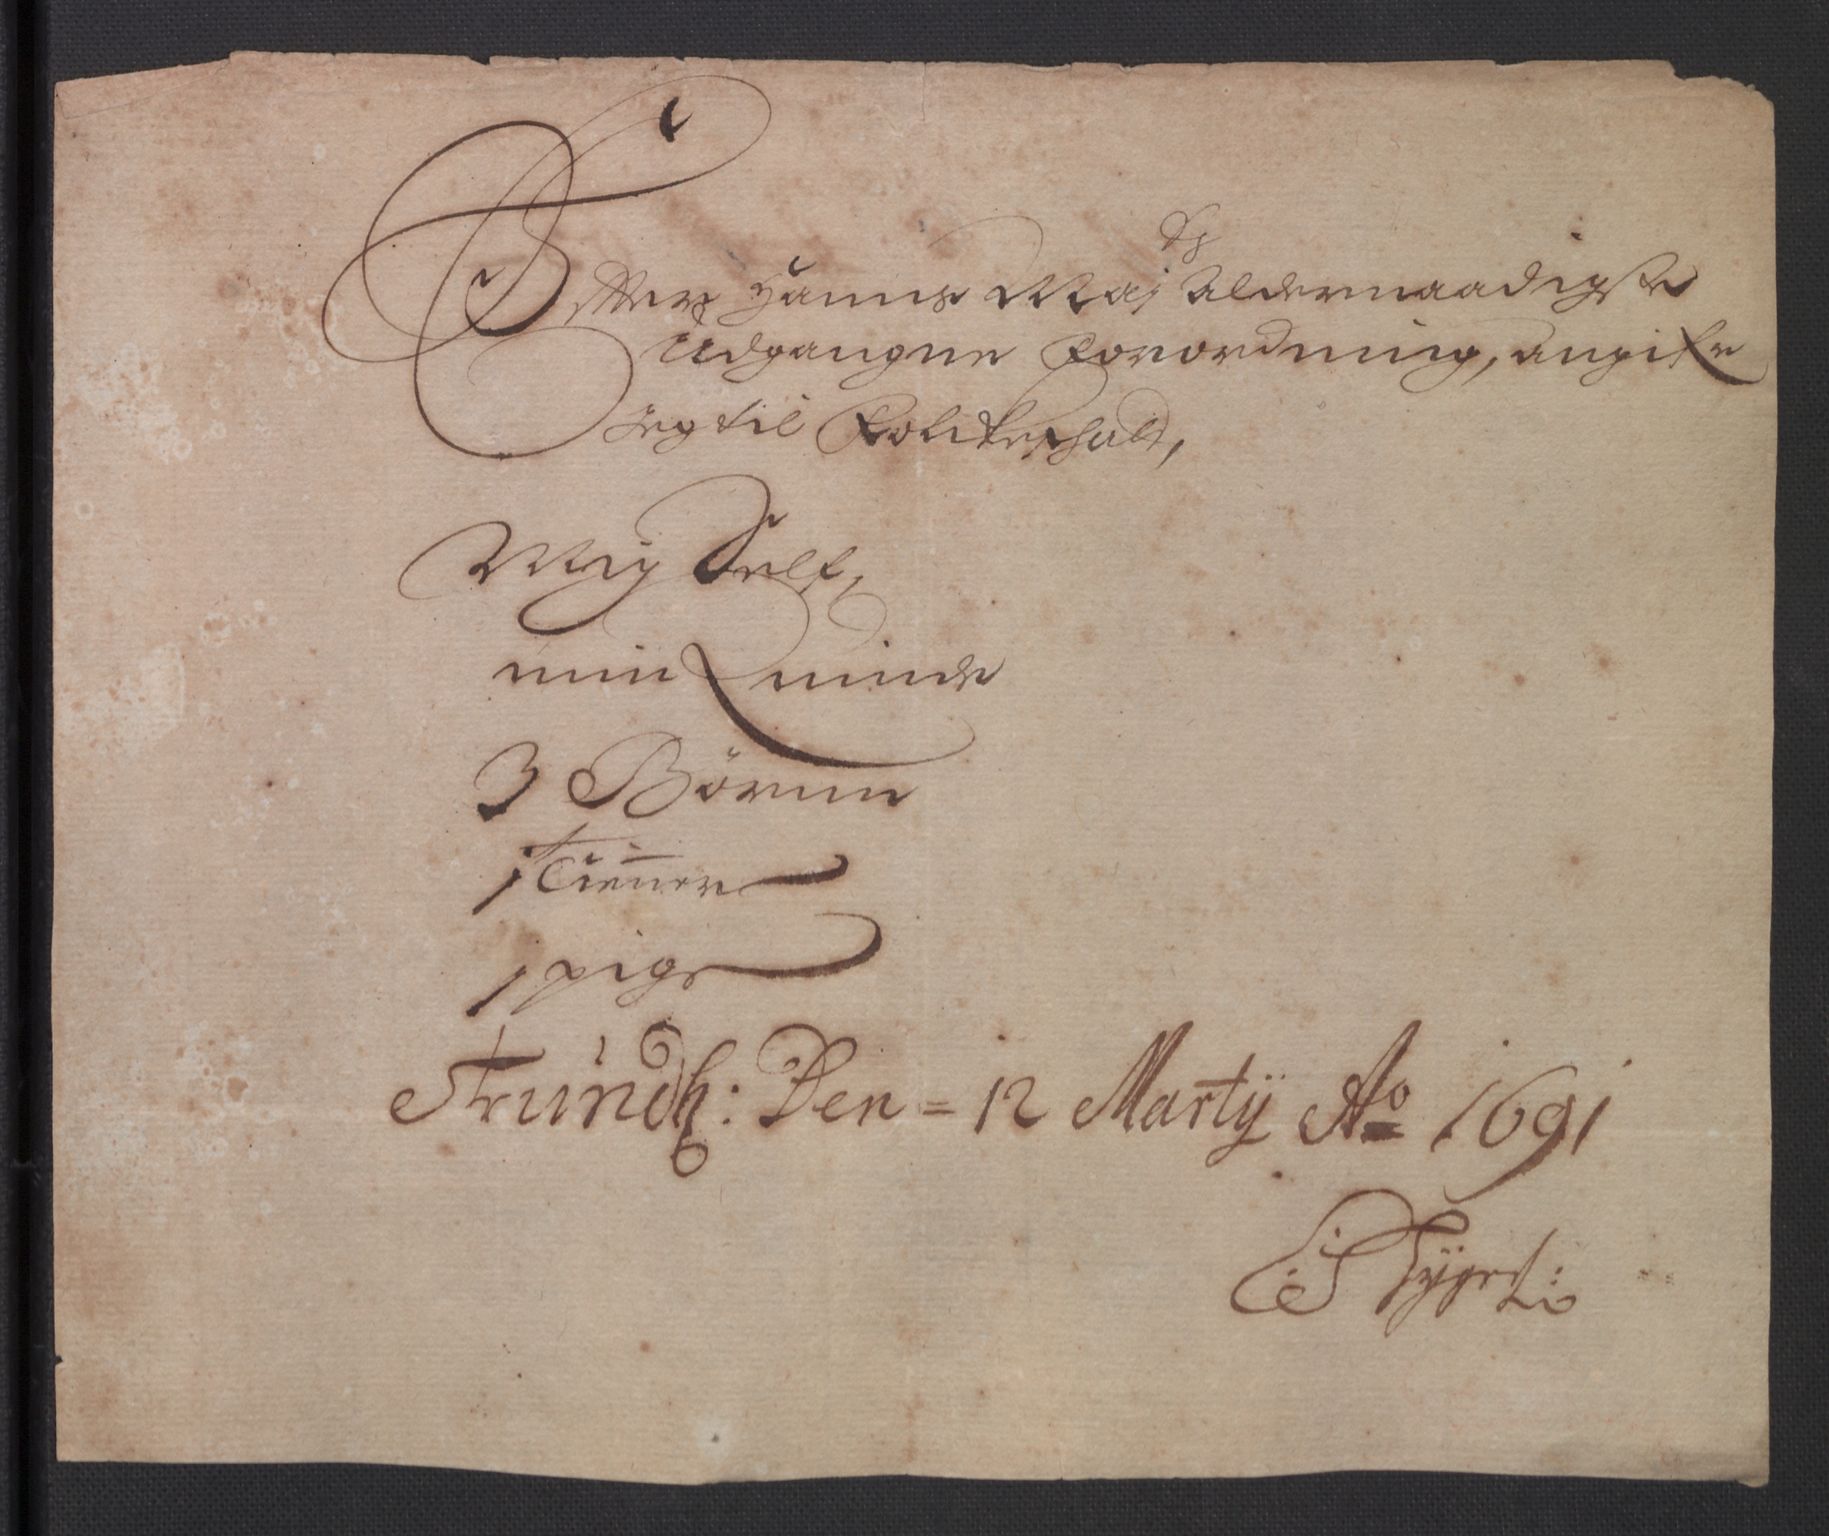 Effter Hanns Maj ts Aldernaadigste
Udgangne Forordning, angifr
Jeg til Folckeshald,
Mig Self,
min Quinde
3 Börnn
1 Tienner
1 pige
Trundh: Den = 12 Martij Ao 1691